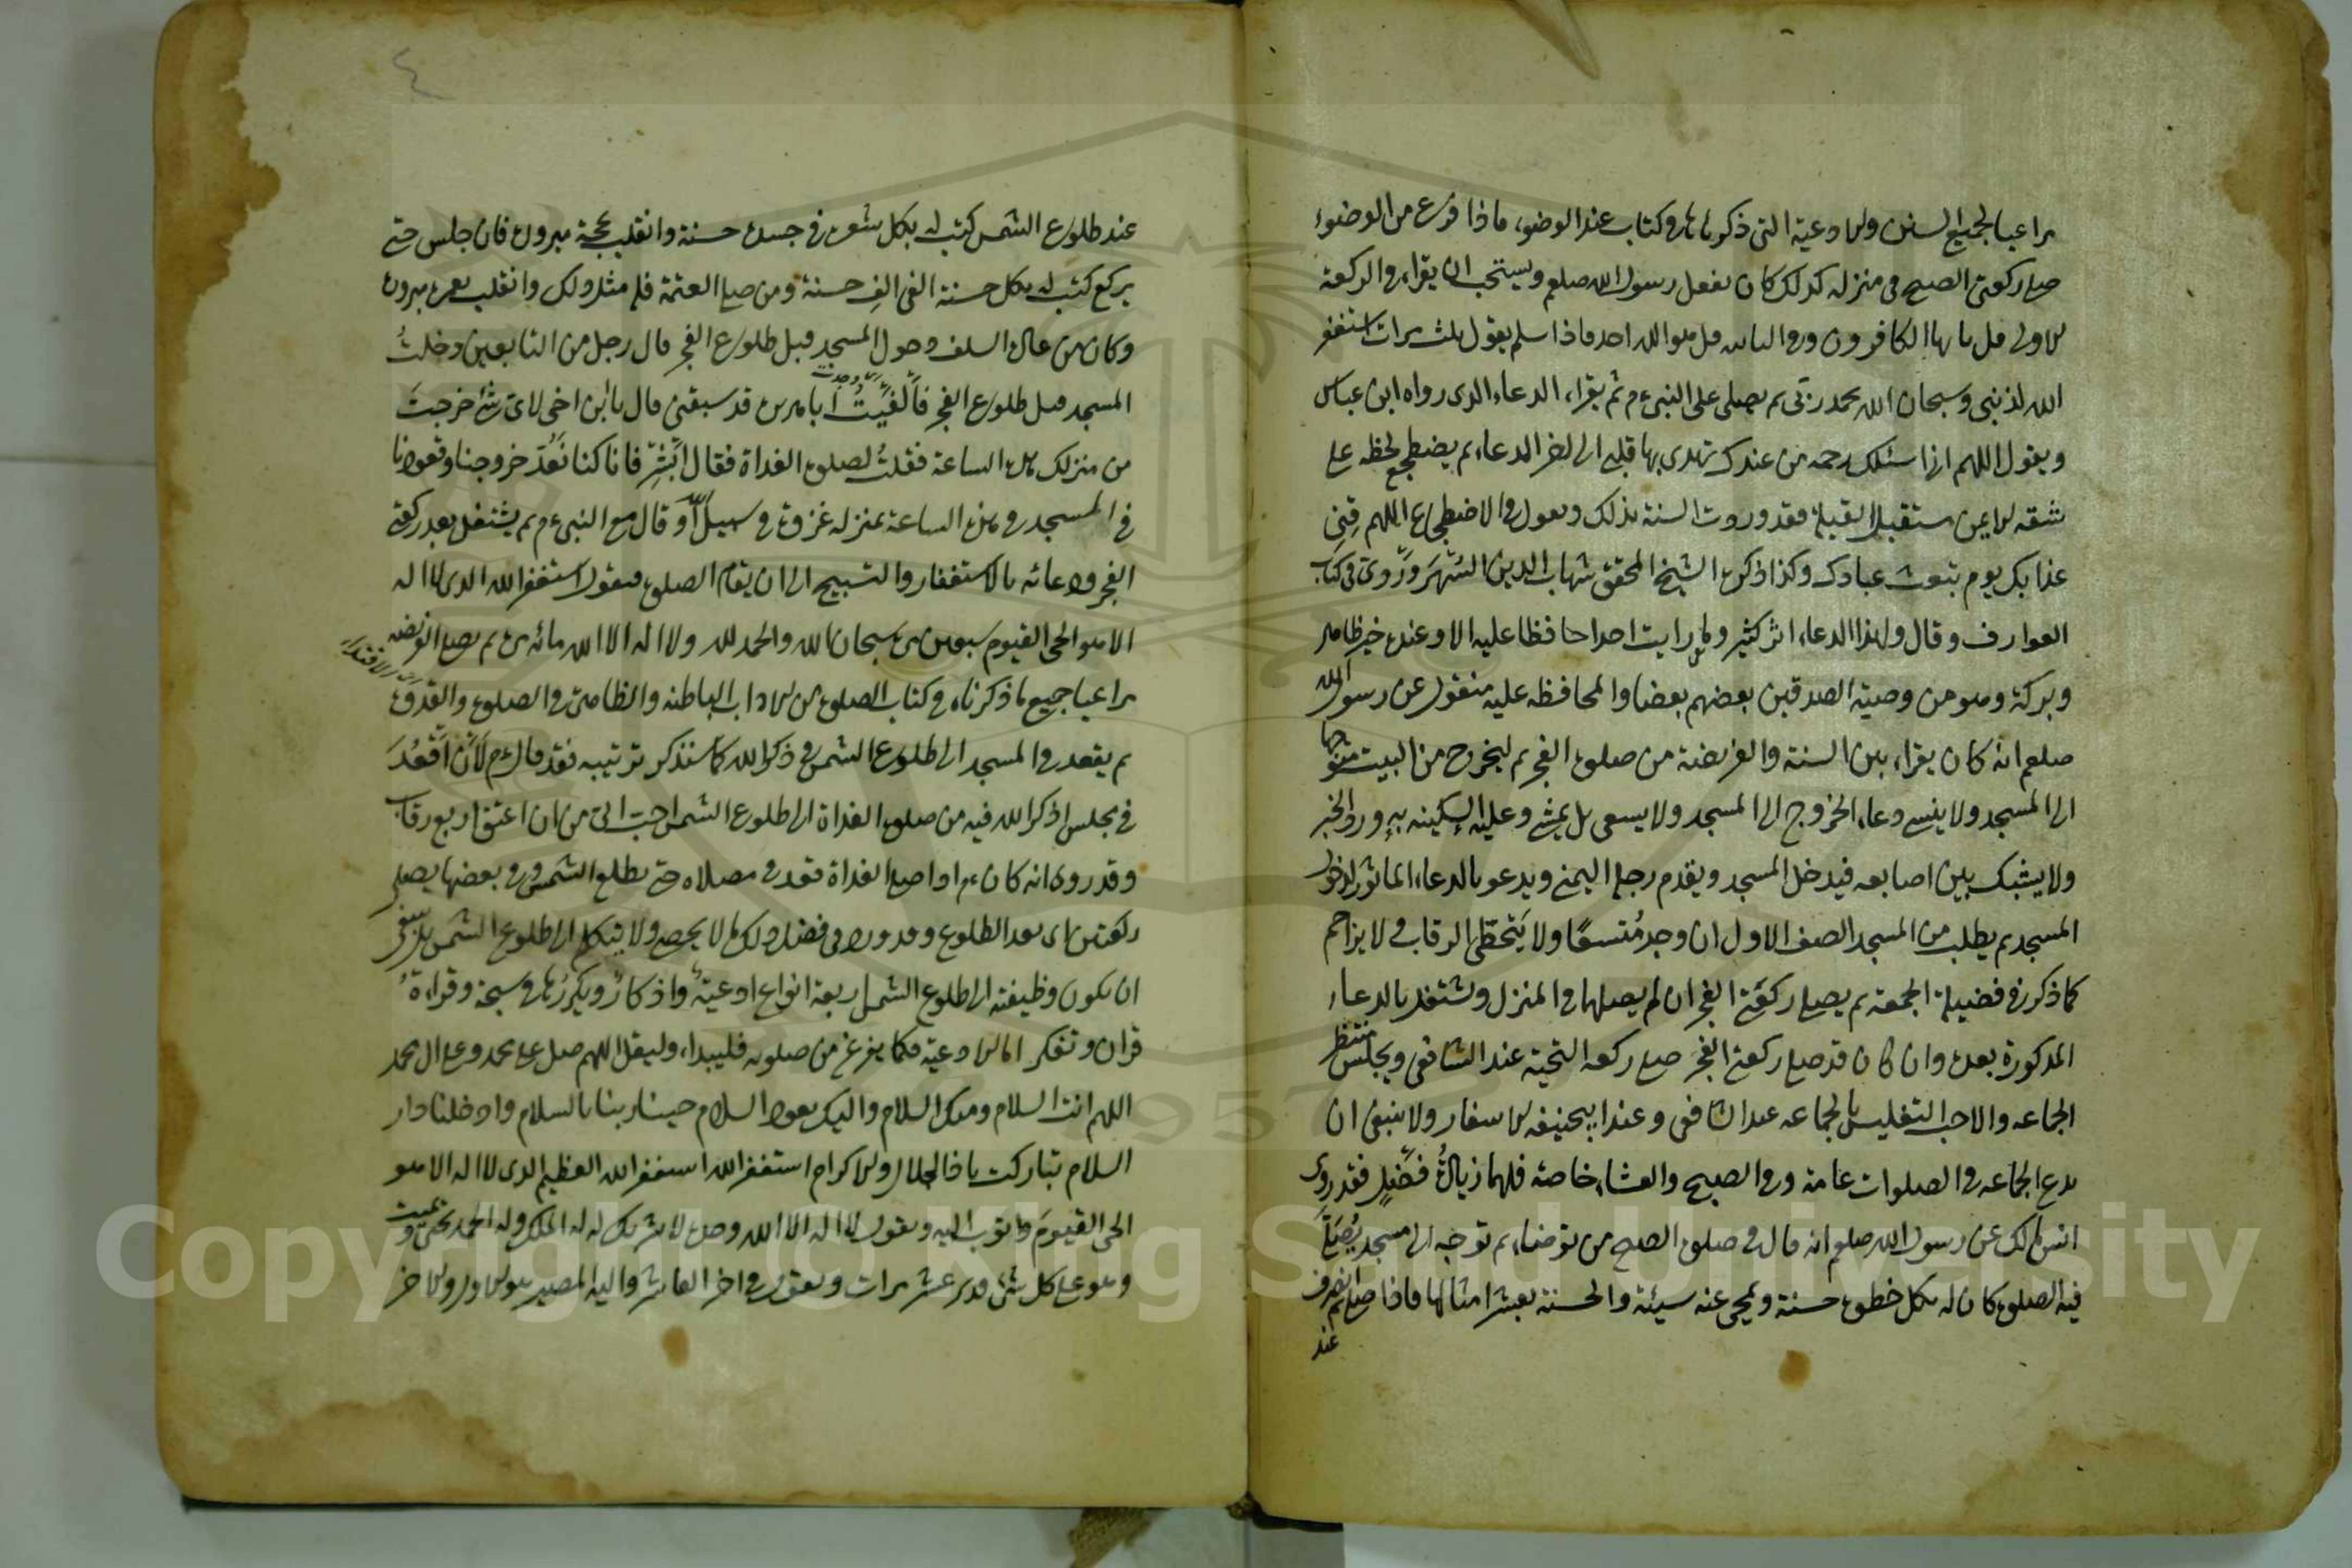 مراعيا لجميع السنن والادعية التى ذكرناها فى كتاب عند الوضوء فاذا فرغ من الوضوء
صلى ركعتى الصبح فى منزله كذلك كان يفعل رسول الله صلعم ويستحب ان يقراء فى الركعة
الاولى قل يا ايها الكافرون وفى الثانيه قل هو الله احد فاذا سلم يقول ثلث مرات استغفر
الله لذنبى وسبحان الله بحمد ربى ثم يصلى على النبى ءم ثم يقراء الدعاء الذى رواه ابن عباس
ويقول اللهم انى اسئلك رحمه من عندك تهدى بها قلبى الى اخر الدعاء ثم يضطجع لحظه على
شقه الايمن مستقبل القبلة فقد وردت السنة بذلك ويقول فى الاضطجاع اللهم قنى
عذابك يوم تبعث عبادك وكذا ذكره الشيخ المحقق شهاب الدين السُهْرَوَرْدى فى كتاب
العوارف وقال ولهذا الدعاء اثر كثير ولم رايت احدا حافظا عليه الا وعنده خير ظاهر
وبركة وهو من وصية الصدقين بعضهم بعضا والمحافظه عليه منقول عن رسول الله
صلعم انه كان يقراء بين السنة والفريضة من صلوة الفجر ثم ليخرج من البيت متوجها
الى المسجد ولا ينسى دعاء الخروج الى المسجد ولا يسعى بل يمشى وعليه السكينه به ورد الخبر
ولا يشبك بين اصابعه فيدخل المسجد ويقدم رجله اليمنى ويدعو بالدعاء الماثور لدخول
المسجد ثم يطلب من المسجد الصف الاول ان وجد مُتسعًا ولا يَتخطى الرقاب ولا يزاحم
كما ذكر فى فضيلة الجمعة ثم يصلى ركعتى الفجر ان لم يصلهما فى المنزل ويشتغل بالدعاء
المذكورة بعده وان كان قد صلى ركعتى الفجر صلى ركعه التحية عند الشافعى ويجلس منتظر
الجماعه والاحب التغليس بالجماعه عند الشافعى وعند ابيحنيفه الاسفار ولا ينبغى ان
يدع الجماعه فى الصلوات عامة وفى الصبح والعشاء خاصة فلهما زيادةُ فضل فقد روى
انس مالك عن رسول الله صلعم انه قال فى صلوة الصبح من توضاء ثم توجه الى مسجد يُصَلَّى
فيه الصلوة كان له بكل خطوة حسنة ويمحى عنه سيئة والحسنة بعشر امثالها فاذا صلى ثم انصرف
عند
٤
عند طلوع الشمس كتب له بكل شعرة فى جسده حسنة وانقلب بحجة مبرورة فان جلس حتى
يركع كتب له بكل حسنة الفى الفِ حسنة ومن صلى العتمة فله مثل ذلك وانقلب بعمرة مبرورة
وكان من عادة السلف دخول المسجد قبل طلوع الفجر قال رجل من التابعين دخلتُ
المسجد قبل طلوع الفجر فاَلفَيْتُ اباهريره قد سبقنى قال يا ابن اخى لاى شئ خرجتَ
اى وجدت
من منزلك هذه الساعة فقلتُ لصلوة الغداة فقال اَبْشِر فانا كنا نَعُدّ خروجنا وقعودنا
فى المسجد فى هذه الساعة بمنزله غزوة فى سبيل الله او قال مع النبى ءم ثم يشتغل بعد ركعتى
الفجر ودعائه بالاستغفار والتسبيح الى ان يقام الصلوة فيقول استغفر الله الذى لا اله
الا هو الحى القيوم سبعين مرة سبحان الله والحمد لله ولا اله الا الله مائه مرة ثم يصلى الفريضه
مراعيا جميع ما ذكرناه فى كتاب الصلوة من الاداب الباطنه والظاهرة فى الصلوة والقدوة
ثم يقعد فى المسجد الى طلوع الشمس فى ذكر الله كما سنذكر ترتيبه فقد قال ءم لَاَنْ اَقْعُدَ
فى مجلس اذكر الله فيه من صلوة الغداة الى طلوع الشمس احب الى من ان اعتق اربع رقاب
وقد روى انه كان ءم اذا صلى الغداة قعد فى مصلاه حتى يطلع الشمس وفى بعضها يصلى
ركعتين اى بعد الطلوع وقد ورد فى فضل ذلك ما لا يحصى ولا يتكلم الى طلوع الشمس بل ينبغى
ان يكون وظيفته الى طلوع الشمس اربعة انواع ادعيةٌ واذكارٌ ويكررها فى سبحة وقراءةُ
قران وتفكر اما الادعية فكما يفرغ من صلوته فليبداء وليقل اللهم صل على محمد وعلى ال محمد
اللهم انت السلام ومنك السلام واليك يعود السلام حينا ربنا بالسلام وادخلنا دار
السلام تباركت يا ذا الجلال والاكرام استغفر الله استغفر الله العظيم الذى لا اله الا هو
الحى القيومَ واتوب اليه ويقول لا اله الا الله وحده لا شريك له له الملك وله الحمد يحى ويميت
وهو على كل شئ قدير عشر مرات ويقول فى اخر العاشر واليه المصير هو الاول والاخر